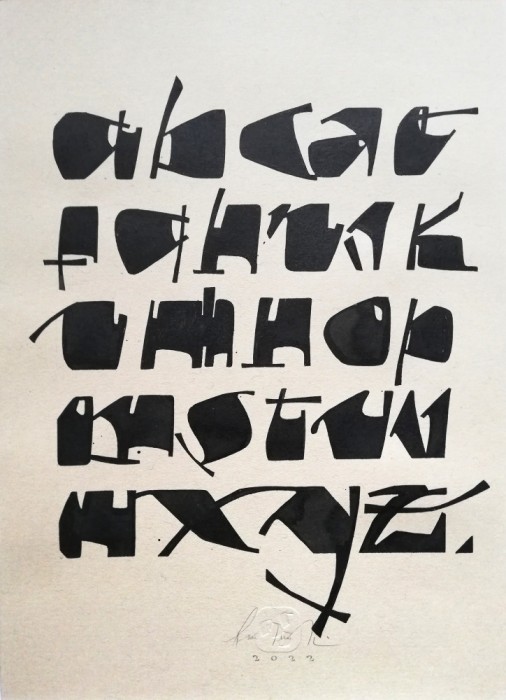 abcde
fghijk
lmnop
qrstuv
wxyz.
2023